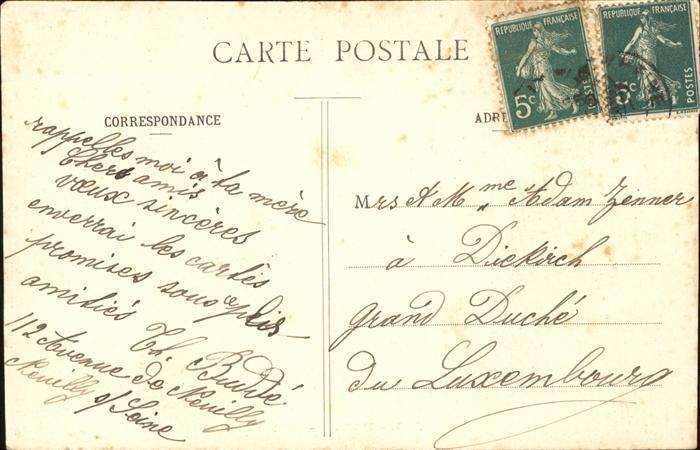 CARTE POSTALE
REPUBLIQUE FRANÇAISE
5c
REPUBLIQUE FRANÇAISE
5c
POSTES
CORRESPONDANCE
ADRE
rappelles moi à ta mère
Chers amis
vœux sincères
enverrai les cartes
promises sous plis
amitiés
Th.
112 Avenue de Neuilly
Neuilly s/Seine
Mrs & Mme Adam Zenner
à Diekirch
Grand Duché
du Luxembourg